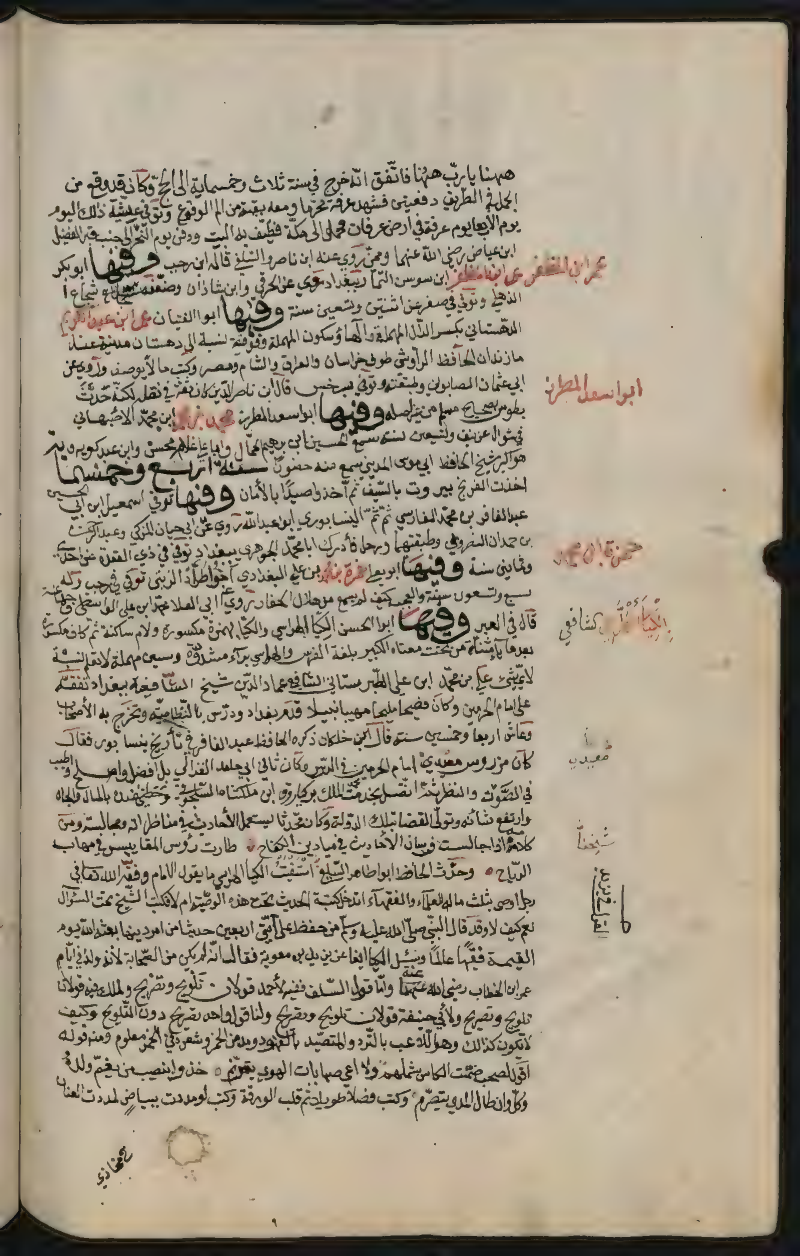 ههنا يا رب ههنا فاتفق انه خرج في سنة ثلاث وخمسماية الى الحج وكان قد وقع من
الجمل في الطريق دفعتين فشهد عرفة محرما ومعه بقية من الم الوقوع وتوفي عشية ذلك اليوم
يوم الاربعا يوم عرفة في ارض عرفات فحمل الى مكة فطيف به البيت ودفن يوم النحر الى جنب قبر الفضيل
ابن عياض رضي الله عنهما وممن روى عنه ابن ناصر والسلفي قاله ابن رجب وفيها ابو بكر
ابن سوس التمار ببغداد روى عن الحرفي وابن شاذان وضعفه شجاع
الذهلي وتوفي في صفر عن اثنتين وتسعين سنة وفيها ابو الفتيان عمر ابن عبد الكريم
الدهستاني بكسر الدال المهملة والهاء وسكون المهملة وفوقية نسبة الى دهستان مدينة عند
مازندان الحافظ الرواسي طوف خراسان والعراق والشام ومصر وكتب ما لا يوصف وروى عن
ابي عثمان الصابوني وطبقته وتوفي بسرخس قال ابن ناصر الدين كان ثقة في نقله لكنه حدث
بطوس بصحيح مسلم من غير اصله وفيها ابو سعد المطرز محمد بن محمد ابن محمد الاصبهاني
في شوال عن نيف وتسعين سنة سمع الحسين ابن ابراهيم الجمال وابا علي غلام محسن وابن عبد كويه
هو اكبر شيخ للحافظ ابي موسى المديني سمع منه حضورا سنة اربع وخمسماية
اخذت الفرنج بيروت بالسيف ثم اخذوا صيدا بالأمان وفيها توفي اسمعيل ابن ابي الحسين
عبد الغافر بن محمد الفارسي ثم النيسابوري ابو عبد الله روى عن ابي حسان المزكي وعبد الرحمن
بن حمدان النصروي وطبقتهما ورحل فأدرك ابا محمد الجوهري ببغداد توفي في ذي القعدة عن احدى
وثمانين سنة وفيها ابو يعلى حمزة بن محمد بن علي البغدادي اخو طراد الزينبي توفي في رجب وله
سبع وتسعون سنة والعجب كيف لم يسمع من هلال الحفار روى عن ابي العلا محمد ابن علي الواسطي وجماعة
قاله في العبر وفيها ابو الحسن الكيا الهراسي والكيا بهمزة مكسورة ولام ساكنة ثم كاف مكسورة
بعدها ياء مثناة من تحت معناه الكبير بلغة الفرس والهراسي براء مشددة وسين مهملة لا تعلم نسبته
لاي شيء علي بن محمد ابن علي الطبرستاني الشافعي عماد الدين شيخ الشافعية ببغداد تفقه
على امام الحرمين وكان فصيحا مليحا مهيبا نبيلا قدم بغداد ودرس بالنظامية وتخرج به الأصحاب
وعاش اربعا وخمسين سنة قال ابن خلكان ذكره الحافظ عبد الغافر في تأريخ نيسابور فقال
كان من رؤس معيدي امام الحرمين في الدرس وكان ثاني ابي حامد الغزالي بل افضل واصلح واطيب
في الصوت والنظر ثم اتصل بخدمة الملك بركياروق ابن ملكشاه السلجوقي وحظي عنده بالمال والجاه
وارتفع شانه وتولى القضا بتلك الدولة وكان محدثا يستعمل الأحاديث في مناظراته ومجالسه ومن
كلامه اذا جالت فرسان الأحاديث في ميادين الكفاح طارت رؤس المقاييس في مهاب
الرياح وحدث الحافظ ابو طاهر السلفي استفتيت الكيا الهراسي ما يقول الامام وفقه الله تعالى في
رجل اوصى بثلث ماله للعلماء والفقهاء اتدخل كتبة الحديث تحت هذه الوصية ام لا فكتب الشيخ تحت السؤال
نعم كيف لا وقد قال النبي صلى الله عليه وسلم من حفظ على أمتي اربعين حديثا من امر دينها بعثه الله يوم
القيمة فقيها عالما وسئل الكيا ايضا عن يزيد بن معوية فقال انه لم يكن من الصحابة لأنه ولد في ايام
عمر ابن الخطاب رضي الله عنه واما قول السلف ففيه لأحمد قولان تلويح وتصريح ولملك فيه قولان
تلويح وتصريح ولأبي حنيفة قولان تلويح وتصريح ولنا قول واحد تصريح دون التلويح وكيف
لا يكون كذلك وهو اللاعب بالنرد والمتصيد بالفهود ومدمن الخمر وشعره في الخمر معلوم ومنه قوله
اقول لصحب ضمت الكاس شملهم وداعي صبابات الهوى يترنم خذوا بنصيب من نعيم ولذة
وكل وان طال المدى يتصرم وكتب فصلا طويلا ثم قلب الورقة وكتب لو مددت ببياض لمددت العنان
عمر ابن المظفر
ابو اسعد المطرز
حمزة ابن محمد
الكيا الهراسي الشافعي
معيدي
القول في يزيد